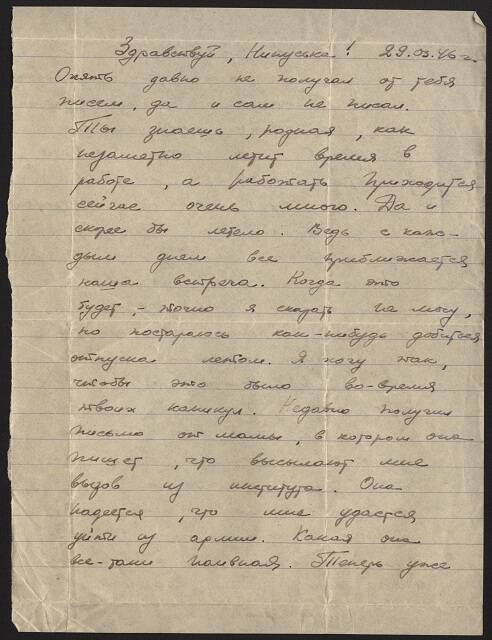 Здравствуй, Нинуська! 29.03.46 г.
Опять давно не получал от тебя
писем, да и сам не писал.
Ты знаешь, родная, как
незаметно летит время в
работе, а работать приходится
сейчас очень много. Да и
скорее бы летело. Ведь с каж-
дым днем все приближается
наша встреча. Когда это
будет, – точно я сказать не могу,
но постараюсь как-нибудь добиться
отпуска летом. Я хочу так,
чтобы это было во-время
твоих каникул. Недавно получил
письмо от мамы, в котором она
пишет, что высылают мне
вызов из института. Она
надеется, что мне удастся
уйти из армии. Какая она
все-таки наивная. Теперь уже